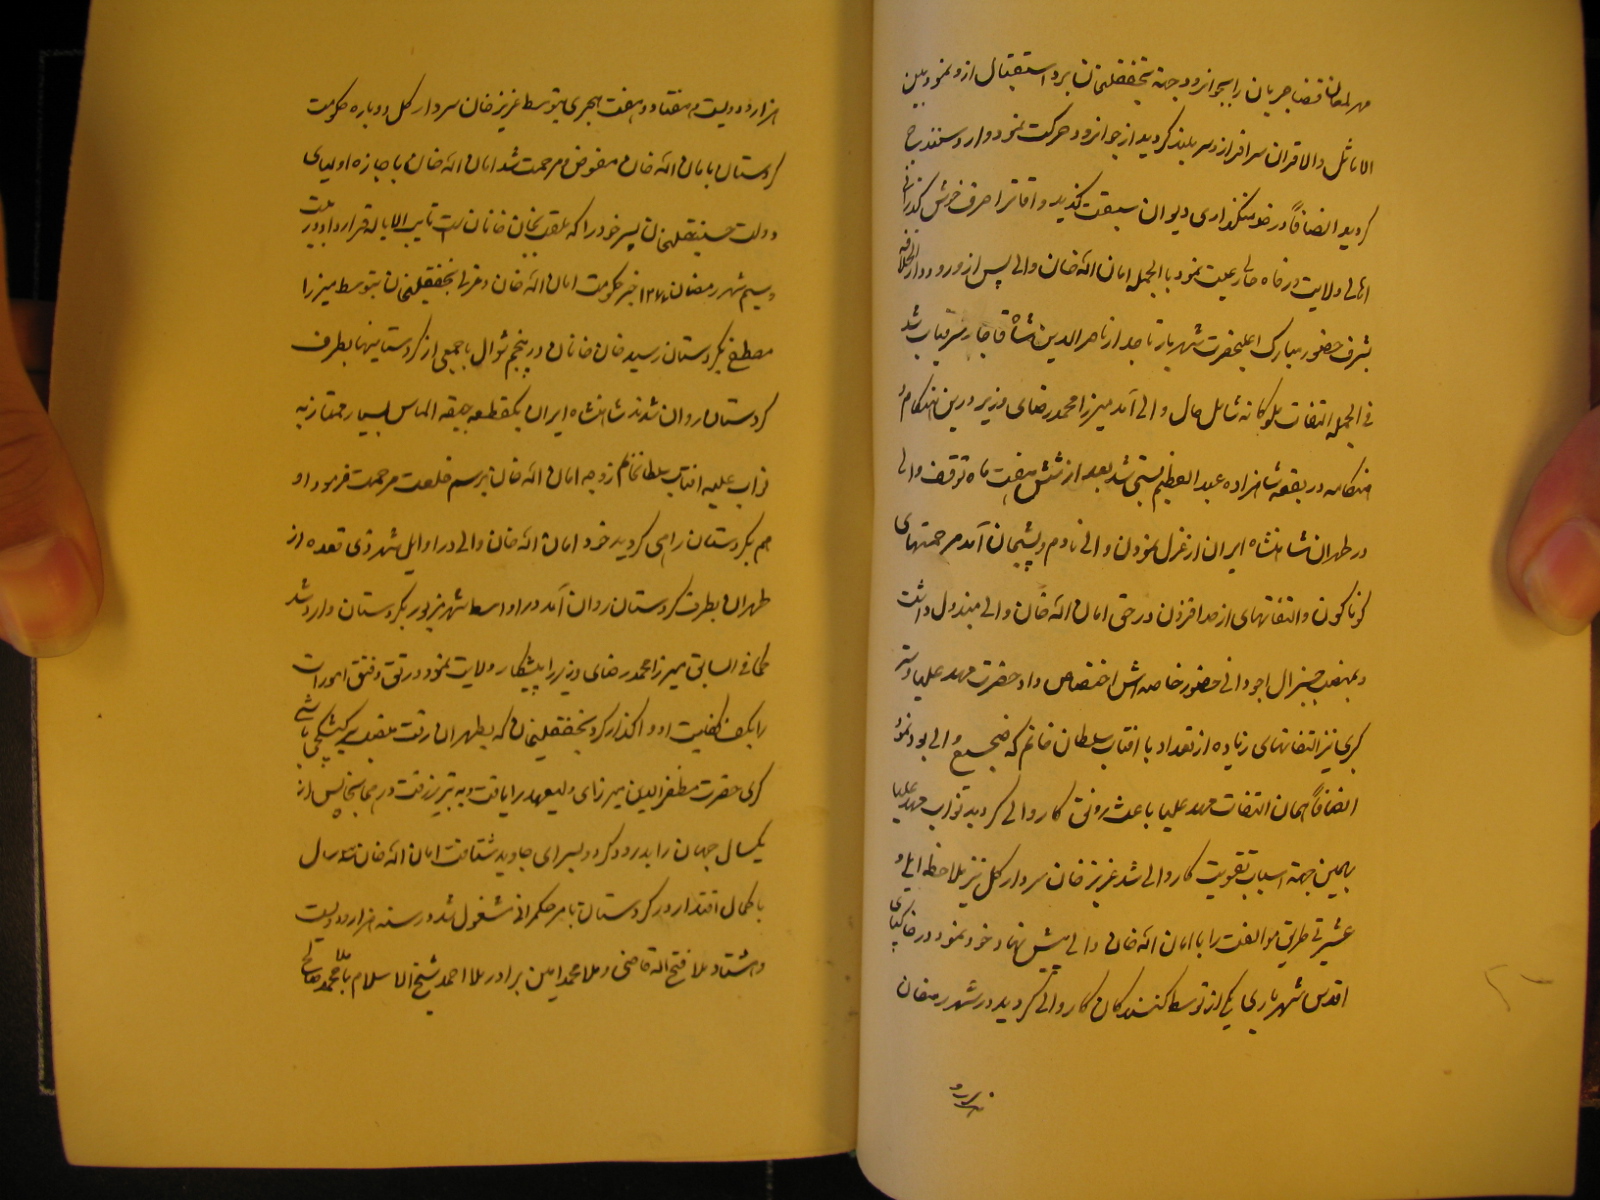 مهر لمعان قضا جریان را بجوانرود جهة نجفقلیخان برد استقبال از و نمود بین
الاماثل والاقران سرافراز و سربلند گردید از جوانرود حرکت نمود وارد سنندج
گردید انصافاً در خدمتگزاری دیوان سبقت
اهالی ولایت در رفاه حال رعیت نمود بالجمله امان الله خان والی پس از ورود دارالخلافه
بشرف حضور مبارک اعلیحضرت شهریار تاجدار ناصرالدین شاه قاجار شرفیاب شد
فی الجمله التفات ملوکانه شامل حال والی آمد میرزا محمد رضای وزیر درین هنگام
در بقعه شاهزاده عبدالعظیم بستی شد بعد از شش هفت ماه توقف والی
در طهران شاهنشاه ایران از عزل نمودن والی نادم و پشیمان آمد مرحمتهای
گوناگون والتفاتهای از حد افزون در حق امان الله خان والی مبذول داشت
و بمنصب جنرال اجودانی حضور خاصه اش اختصاص داد حضرت مهد علیا و ستر
کبری نیز التفاتهای زیاده از تعداد با آفتاب سلطان خانم که ضجیع والی بود نمود
انصافاً همان التفات مهد علیا باعث رونق کار والی گردید نواب مهد علیا
بهمین جهة اسباب تقویت کار والی شد عزیز خان سردار کل نیز بملاحظه ایلی و
عشیرتی طریق موالفت را با امان الله خان والی پیش نهاد خود نمود در خاکپای
اقدس شهریاری یکی از توسط کنندکان کار والی گردید در شهر رمضان
هزار و دو
هزار و دویست و هفتاد و هفت هجری بتوسط عزیز خان سردار کل دوباره حکومت
کردستان بامان الله خان مفوض و مرحمت شد امان الله خان باجازه اولیای
دولت حسینقلیخان پسر خود را که بلقب خان خانان است نایب الایاله قرار داد در بیست
و سیم شهر رمضان ۱۲۷۷ خبر حکومت امان الله خان و عزل نجفقلیخان بتوسط میرزا
مصطفی بکردستان رسید خان خانان در پنجم شوال با جمعی از کردستانیها بطرف
کردستان روان شدند شاهنشاه ایران یکقطعه جیقه الماس بسیار ممتاز به
نواب علیه آفتاب سلطان خانم زوجه امان الله خان برسم خلعت مرحمت فرمود او
هم بکردستان راهی گردید خود امان الله خان والی در اوایل شهر ذی قعده از
طهران بطرف کردستان روان آمد در اواسط شهر مزبور بکردستان وارد شد
کما فی السابق میرزا محمد رضای وزیر را پیشکار ولایت نمود در رتق و فتق امورات
را بکف کفایت او واگذار کرد نجفقلیخان که بطهران رفت بلقب پیشخدمت باشی
کری حضرت مظفرالدین میرزای ولیعهد را یافت و به تبریز رفت در همانجا پس از
یکسال جهان را بدرود کرد و بسرای جاوید شتافت امان الله خان سه سال
با کمال اقتدار در کردستان بامر حکمرانی مشغول شد در سنه هزار و دویست
و هشتاد ملا فتح الله قاضی و ملا محمد امین برادر ملا احمد شیخ الاسلام با ملا محمد صالح